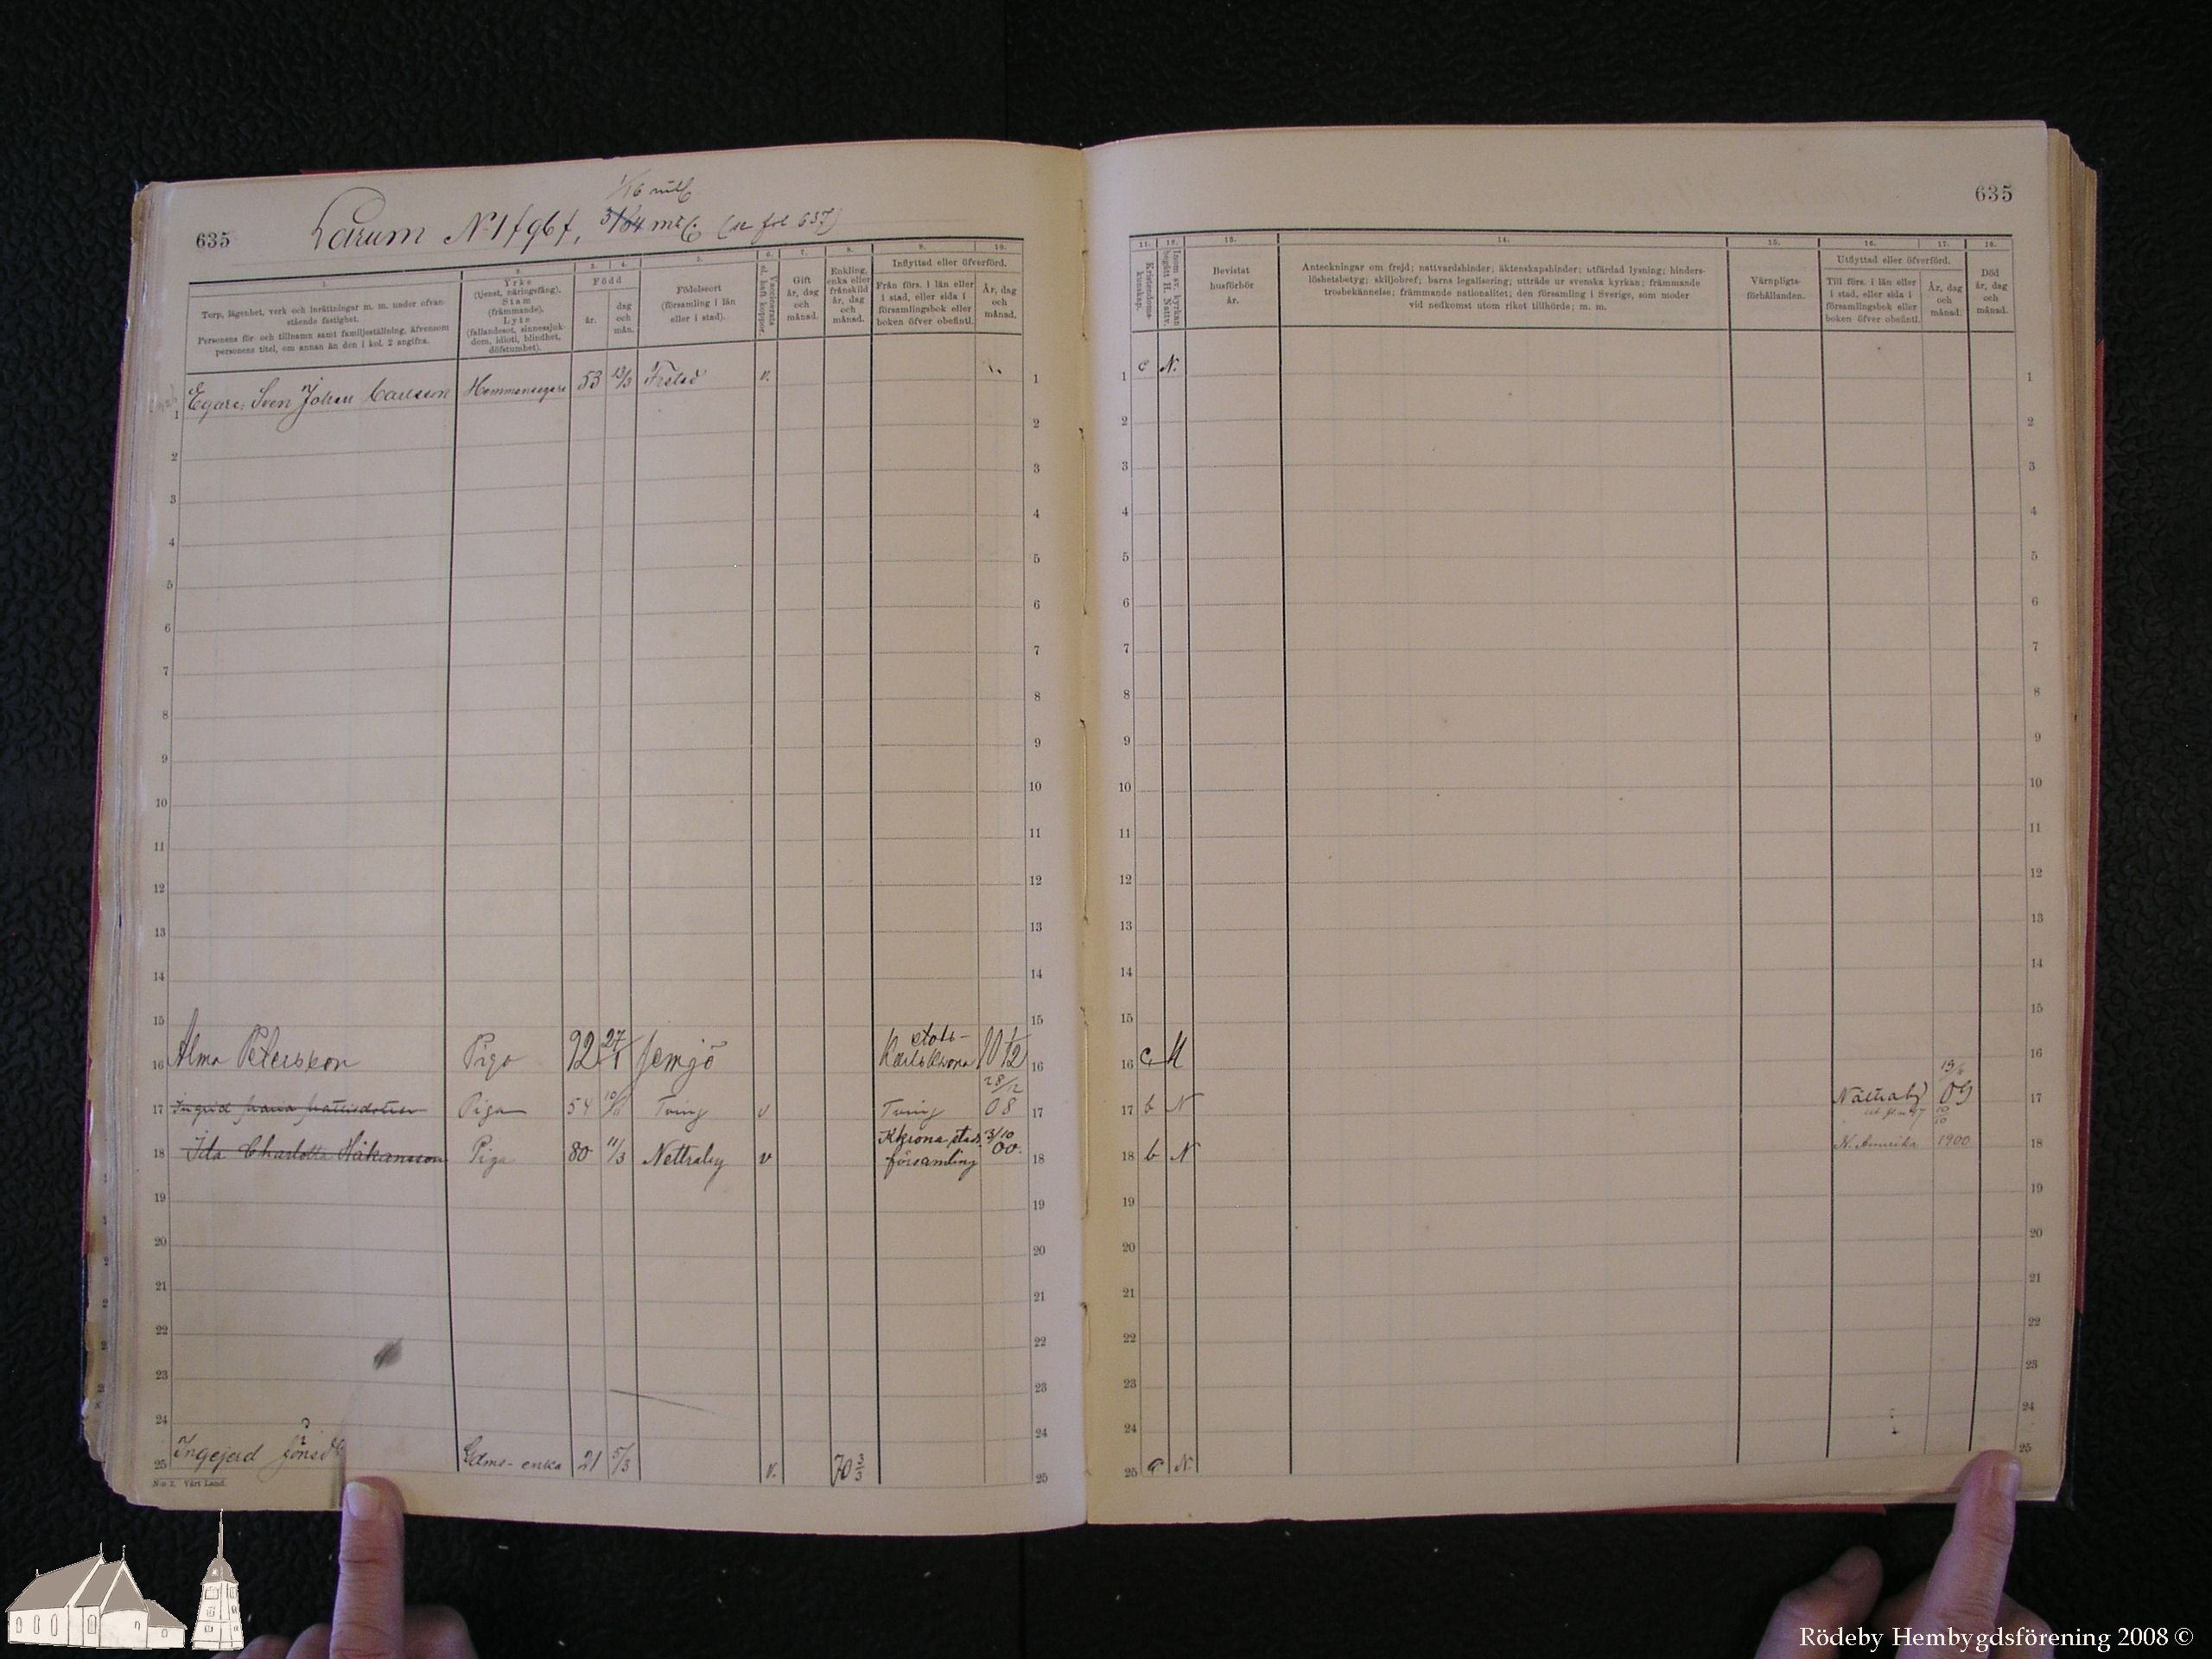 635
1/16 mtl
Lärum № 1 f 96 f, 3/64 mtl (se fol 637)
1. 2. 3. 4. 5. 6. 7. 8. 9. 10.
Torp, lägenhet, verk och inrättningar m. m. under ofvan-
stående fastighet.
Personens för- och tillnamn samt familjeställning, äfvensom
personens titel, om annan än den i kol. 2 angifna.
Yrke
(tjenst, näringsfång).
Stam
(främmande).
Lyte
(fallandesot, sinnessjuk-
dom, idioti, blindhet,
döfstumhet).
Född
år.
dag
och
mån.
Födelseort
(församling i län
eller i stad).
Vaccinerats
el. haft koppor.
Gift
år, dag
och
månad.
Enkling,
enka eller
frånskild
år, dag
och
månad.
Inflyttad eller öfverförd.
Från förs. i län eller
i stad, eller sida i
församlingsbok eller
boken öfver obefintl.
År, dag
och
månad.
1 Egare, Sven Johan Carlsson Hemmansegare 53 13/3 Fristad v. 1
2 2
3 3
4 4
5 5
6 6
7 7
8 8
9 9
10 10
11 11
12 12
13 13
14 14
15 15
16 Alma Petersson Piga 92 27/1 Jemjö Karlskrona stads- 10 1/12 16
17 Ingrid Maria Mattisdotter Piga 54 10/11 Tving v Tving 28/12 08 17
18 Ida Charlotta Håkansson Piga 80 11/3 Nettraby v Kkrona stads 3/10 00. 18
församling
19 19
20 20
21 21
22 22
23 23
24 24
25 Ingejerd Jönsdr Edms-enka 21 5/3 v. 70 3/3 25
N:o 2. Vårt Land.
635
11. 12. 13. 14. 15. 16. 17. 18.
Kristendoms-
kunskap.
Inom sv. kyrkan
begått H. Nattv.
Bevistat
husförhör
år.
Anteckningar om frejd; nattvardshinder; äktenskapshinder; utfärdad lysning; hinders-
löshetsbetyg; skiljobref; barns legalisering; utträde ur svenska kyrkan; främmande
trosbekännelse; främmande nationalitet; den församling i Sverige, som moder
vid nedkomst utom riket tillhörde; m. m.
Värnpligts-
förhållanden.
Utflyttad eller öfverförd.
Till förs. i län eller
i stad, eller sida i
församlingsbok eller
boken öfver obefintl.
År, dag
och
månad.
Död
år, dag
och
månad.
1 c N. 1
2 2
3 3
4 4
5 5
6 6
7 7
8 8
9 9
10 10
11 11
12 12
13 13
14 14
15 15
16 c N 16
17 b N Nättraby 09 17
18 b N N. Amerika 10/10 1900 18
19 19
20 20
21 21
22 22
23 23
24 24
25 a N. 25
Rödeby Hembygdsförening 2008 ©